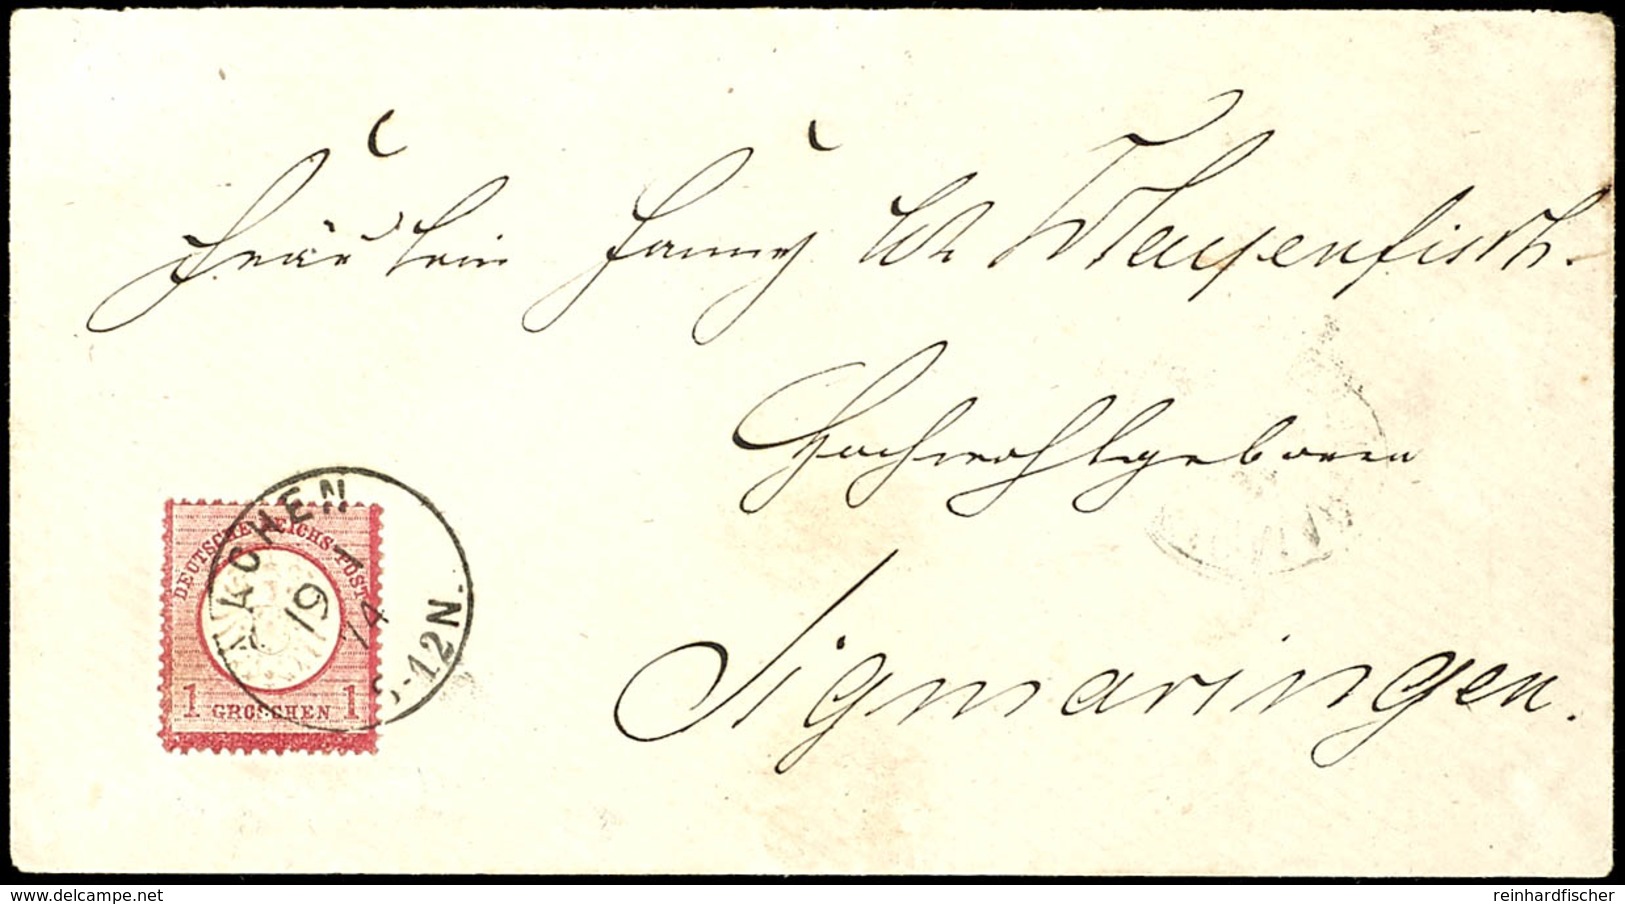 Fräulein Fanny
Hochwohlgeboren
Sigmaringen.
DEUTSCHE REICHS-POST
1 GROSCHEN 1
AUKCHEN
19 1
74
-12 N.
www.delcampe.net
reinhardfischer